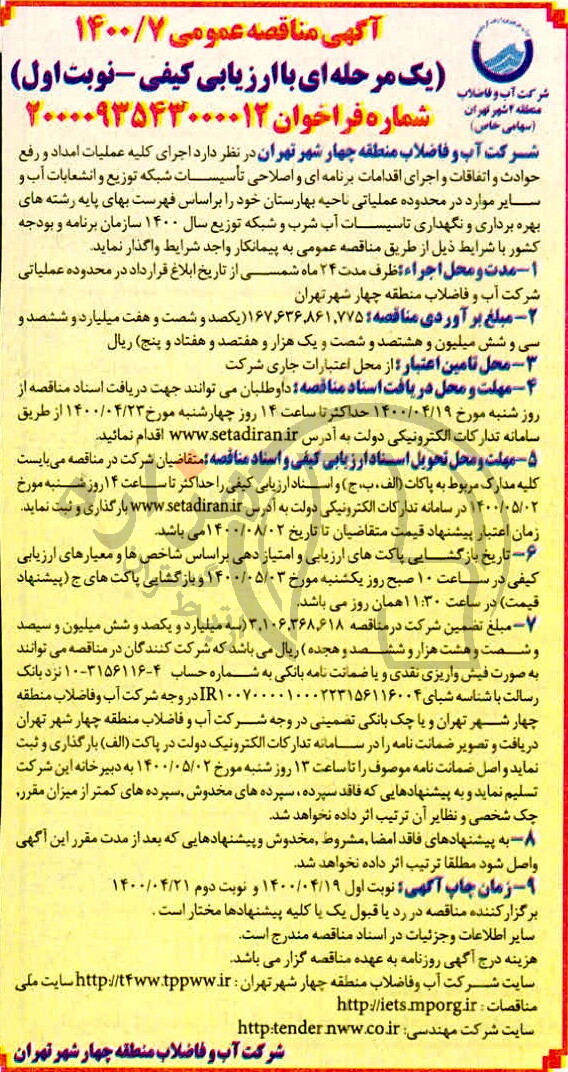 آگهی مناقصه عمومی ۱۴۰۰/۷
(یک مرحله ای با ارزیابی کیفی - نوبت اول)
شماره فراخوان ۲۰۰۰۰۹۳۵۴۳۰۰۰۰۱۲
شرکت آب و فاضلاب
منطقه ۴ شهر تهران
(سهامی خاص)
شرکت آب و فاضلاب منطقه چهار شهر تهران در نظر دارد اجرای کلیه عملیات امداد و رفع
حوادث و اتفاقات و اجرای اقدامات برنامه ای و اصلاحی تأسیسات شبکه توزیع و انشعابات آب و
سایر موارد در محدوده عملیاتی ناحیه بهارستان خود را براساس فهرست بهای پایه رشته های
بهره برداری و نگهداری تاسیسات آب شرب و شبکه توزیع سال ۱۴۰۰ سازمان برنامه و بودجه
کشور با شرایط ذیل از طریق مناقصه عمومی به پیمانکار واجد شرایط واگذار نماید.
۱- مدت و محل اجراء: ظرف مدت ۲۴ ماه شمسی از تاریخ ابلاغ قرارداد در محدوده عملیاتی
شرکت آب و فاضلاب منطقه چهار شهر تهران
۲- مبلغ برآوردی مناقصه: ۱۶۷,۶۳۶,۸۶۱,۷۷۵ (یکصد و شصت و هفت میلیارد و ششصد و
سی و شش میلیون و هشتصد و شصت و یک هزار و هفتصد و هفتاد و پنج) ریال
۳- محل تامین اعتبار: از محل اعتبارات جاری شرکت
۴- مهلت و محل دریافت اسناد مناقصه: داوطلبان می توانند جهت دریافت اسناد مناقصه از
روز شنبه مورخ ۱۴۰۰/۰۴/۱۹ حداکثر تا ساعت ۱۴ روز چهارشنبه مورخ ۱۴۰۰/۰۴/۲۳ از طریق
سامانه تدارکات الکترونیکی دولت به آدرس www.setadiran.ir اقدام نمائید.
۵- مهلت و محل تحویل اسناد ارزیابی کیفی و اسناد مناقصه: متقاضیان شرکت در مناقصه می‌بایست
کلیه مدارک مربوط به پاکات (الف، ب، ج) و اسناد ارزیابی کیفی را حداکثر تا ساعت ۱۴ روز شنبه مورخ
۱۴۰۰/۰۵/۰۲ در سامانه تدارکات الکترونیکی دولت به آدرس www.setadiran.ir بارگذاری و ثبت نماید.
زمان اعتبار پیشنهاد قیمت متقاضیان تا تاریخ ۱۴۰۰/۰۸/۰۲ می باشد.
۶- تاریخ بازگشایی پاکت های ارزیابی و امتیاز دهی براساس شاخص ها و معیارهای ارزیابی
کیفی در ساعت ۱۰ صبح روز یکشنبه مورخ ۱۴۰۰/۰۵/۰۳ و بازگشایی پاکت های ج (پیشنهاد
قیمت) در ساعت ۱۱:۳۰ همان روز می باشد.
۷- مبلغ تضمین شرکت در مناقصه ۳,۱۰۶,۳۶۸,۶۱۸ (سه میلیارد و یکصد و شش میلیون و سیصد
و شصت و هشت هزار و ششصد و هجده) ریال می باشد که شرکت کنندگان در مناقصه می توانند
به صورت فیش واریزی نقدی و یا ضمانت نامه بانکی به شماره حساب ۴-۳۱۵۶۱۱۶-۱۰ نزد بانک
رسالت با شناسه شبای IR۱۰۰۷۰۰۰۰۱۰۰۰۲۲۳۱۵۶۱۱۶۰۰۴ در وجه شرکت آب وفاضلاب منطقه
چهار شهر تهران و یا چک بانکی تضمینی در وجه شرکت آب و فاضلاب منطقه چهار شهر تهران
دریافت و تصویر ضمانت نامه را در سامانه تدارکات الکترونیک دولت در پاکت (الف) بارگذاری و ثبت
نماید و اصل ضمانت نامه موصوف را تا ساعت ۱۳ روز شنبه مورخ ۱۴۰۰/۰۵/۰۲ به دبیرخانه این شرکت
تسلیم نماید و به پیشنهادهایی که فاقد سپرده، سپرده های مخدوش ,سپرده های کمتر از میزان مقرر,
چک شخصی و نظایر آن ترتیب اثر داده نخواهد شد.
۸- به پیشنهادهای فاقد امضا ,مشروط ,مخدوش و پیشنهادهایی که بعد از مدت مقرر این آگهی
واصل شود مطلقا ترتیب اثر داده نخواهد شد.
۹- زمان چاپ آگهی: نوبت اول ۱۴۰۰/۰۴/۱۹ و نوبت دوم ۱۴۰۰/۰۴/۲۱
برگزار کننده مناقصه در رد یا قبول یک یا کلیه پیشنهادها مختار است .
سایر اطلاعات وجزئیات در اسناد مناقصه مندرج است.
هزینه درج آگهی روزنامه به عهده مناقصه گزار می باشد.
سایت شرکت آب وفاضلاب منطقه چهار شهر تهران : http://t4ww.tppww.ir سایت ملی
مناقصات : http://iets.mporg.ir
سایت شرکت مهندسی: http:tender.nww.co.ir
شرکت آب و فاضلاب منطقه چهار شهر تهران